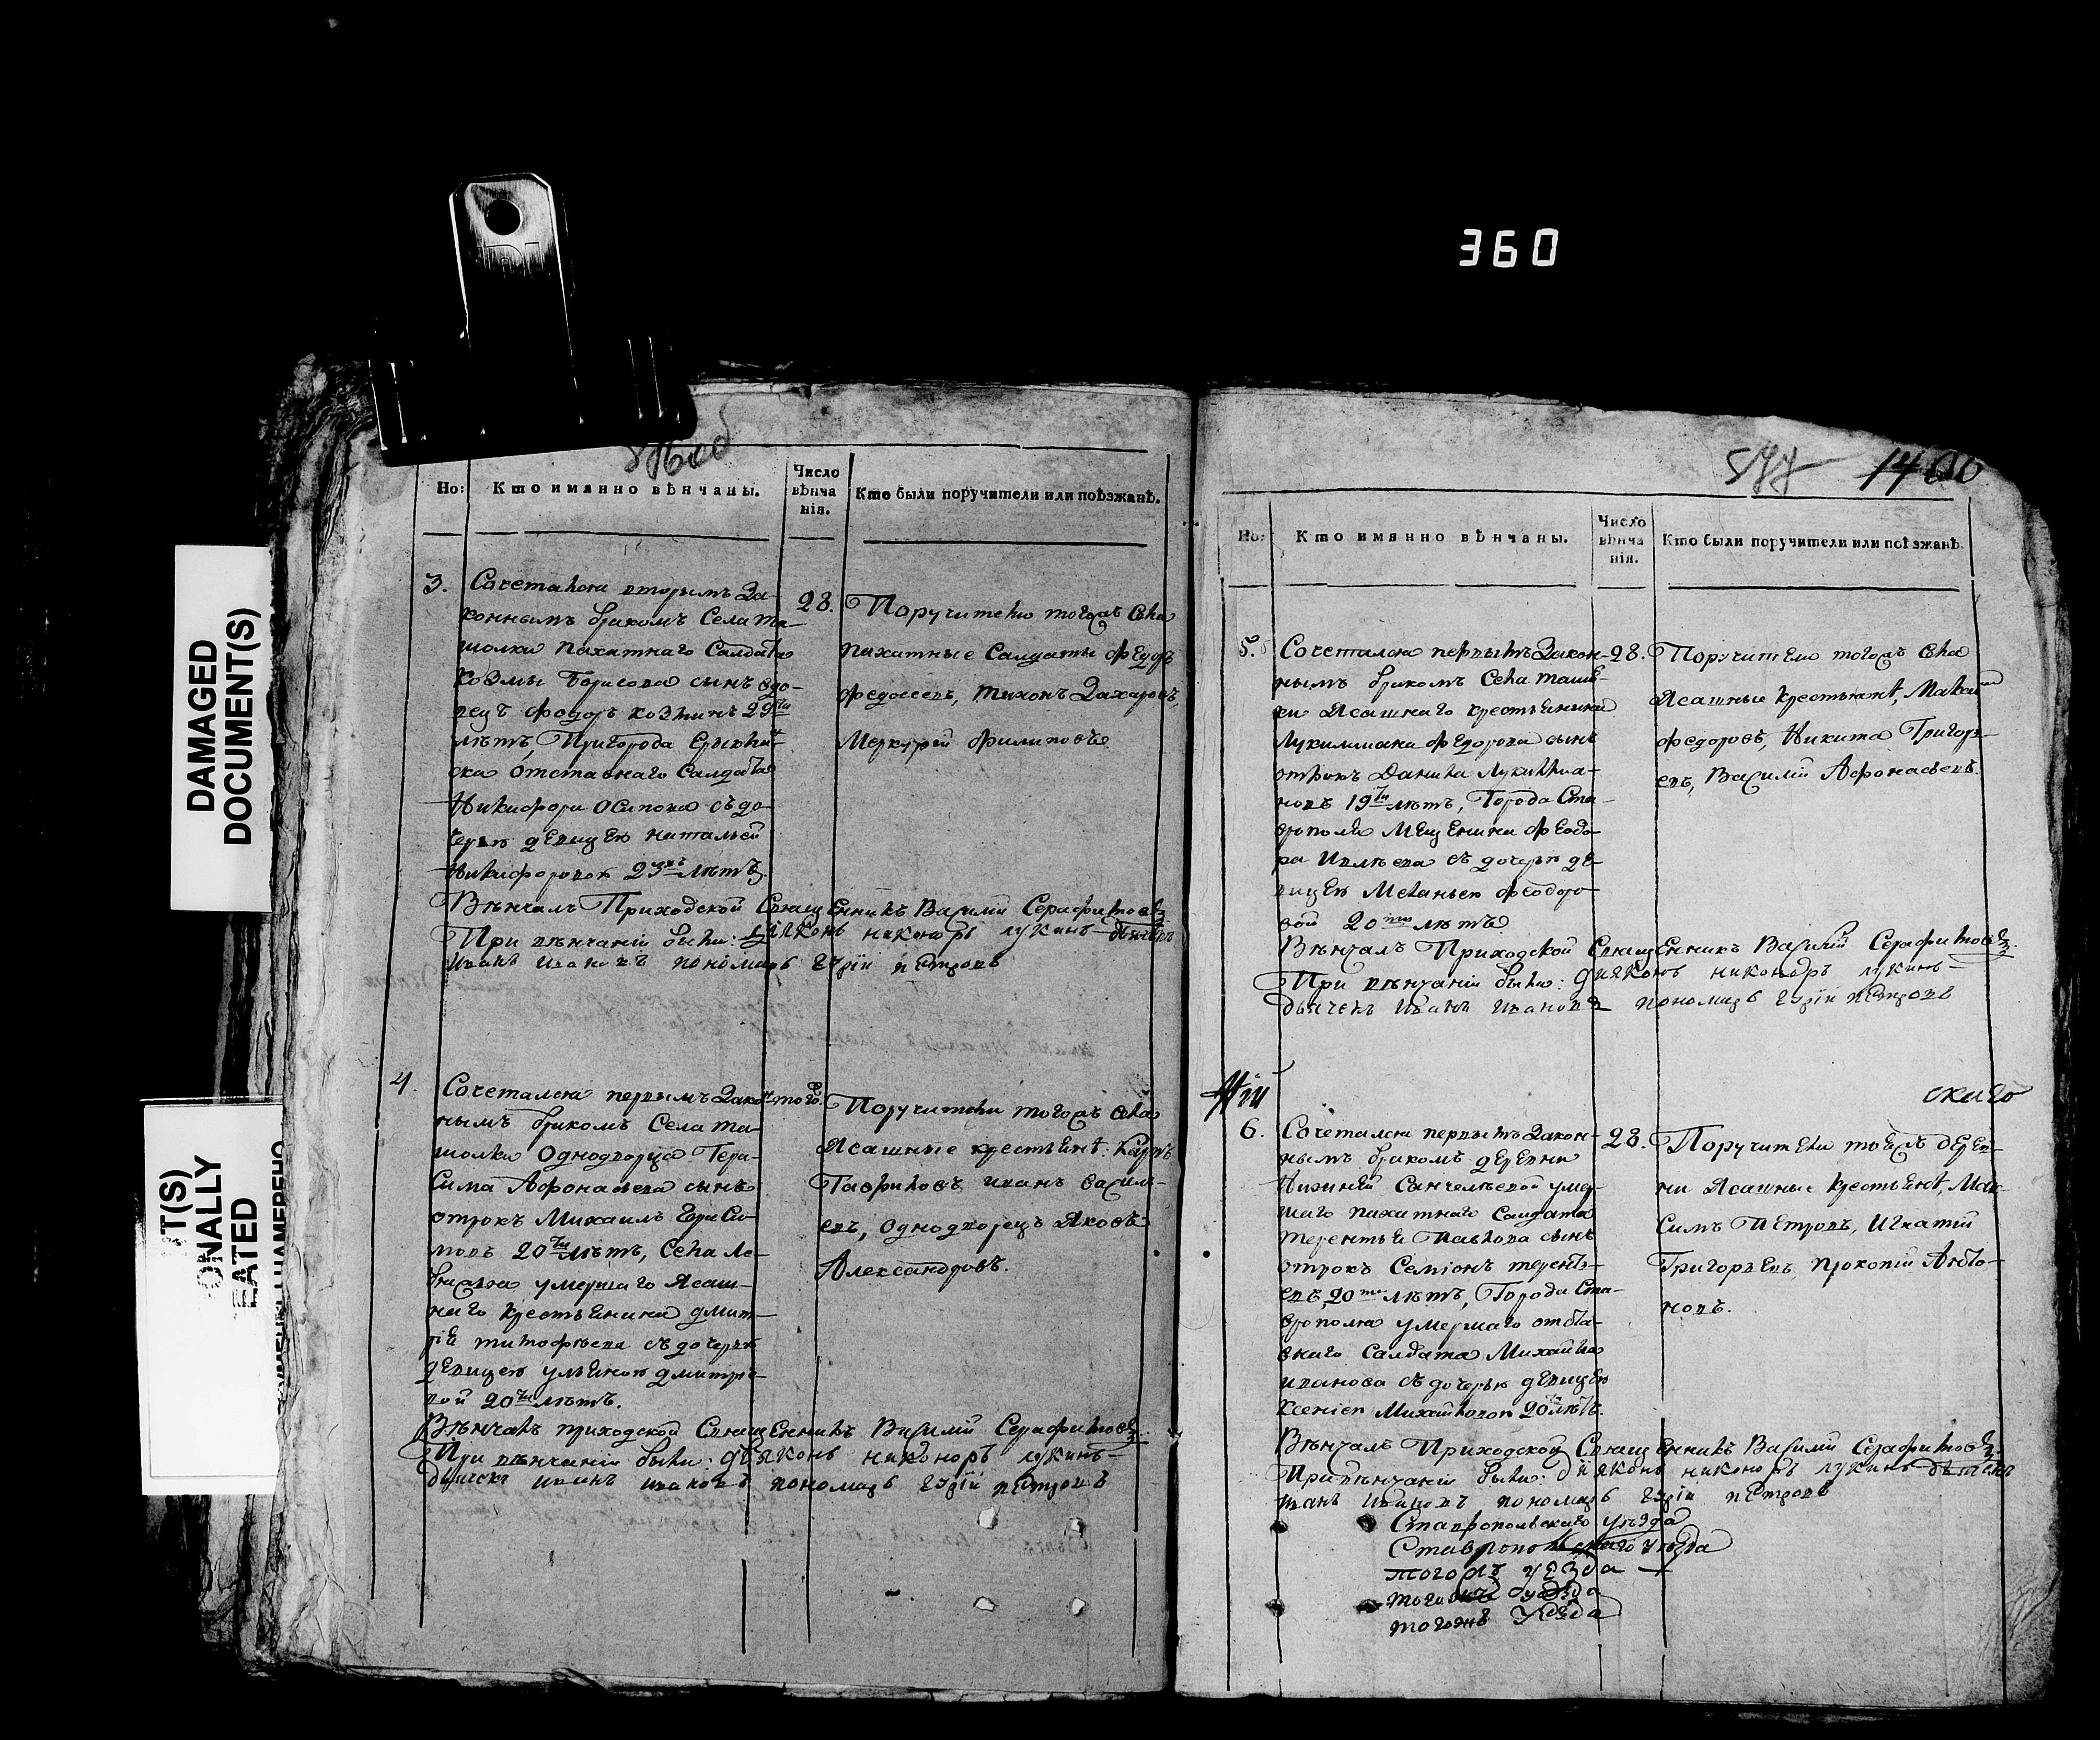 360
DAMAGED
DOCUMENT(S)
T(S)
ONALLY
EATED
Но:
Кто имянно вѣнчаны.
Число
вѣнча
нія.
Кто были поручители или поѣзжанѣ.
3.
Сочетался вторымъ За-
коннымъ бракомъ Села Та-
шолки пахатнаго Салдата
Козмы Борисова сынъ вдо-
вецъ Федоръ Козминъ 29ти
лѣтъ, Пригорода Ерыклин-
ска отставнаго Салдата
Никифора Осипова съ до-
черью девицею Натальей
Никифоровою 23хъ лѣтъ
28.
Поручители тогожъ села
пахатные Салдаты Федоръ
Федосеевъ, Тихонъ Захаровъ,
Меркурей Филиповъ
Вѣнчалъ Приходской Священникъ Василій Серафимовъ
При вѣнчаніи были: діяконъ никоноръ лукинъ дьячекъ
иванъ ивановъ пономарь гурій петровъ
4.
Сочетался первымъ Закон-
нымъ бракомъ Села Та-
шолки Однодворца Гера-
сима Афонасьева сынъ
отрокъ Михаилъ Гераси-
мовъ 20ти лѣтъ, Села
умершаго Ясаш-
наго крестьянина Дмит-
рія Тимофѣева съ дочерью
девицею ульяною дмитре-
вой 20ти лѣтъ.
того
Поручители тогожъ села
Ясашные крестьянѣ: Карпъ
Гавриловъ иванъ Василь-
евъ, однодворецъ Яковъ
Александровъ.
Вѣнчалъ приходской Священникъ Василій Серафимовъ
При вѣнчаніи были: дьяконъ никоноръ лукинъ
дьячекъ иванъ ивановъ пономарь гурій петровъ
577
1400
Но:
Кто имянно вѣнчаны.
Число
вѣнча
нія.
Кто были поручители или поѣзжанѣ.
5.
Сочетался первымъ Закон-
нымъ бракомъ Села Ташел-
ки Ясашнаго крестьянина
Лукиллиана Федорова сынъ
отрокъ Данила Лукиллиа-
новъ 19ти лѣтъ, Города Ста-
врополя Мещенина Феодо-
ра Ивлѣева съ дочерью де-
вицею Меланьею Феодоро-
вой 20ти лѣтъ
28.
Поручители тогожъ села
Ясашные крестьянѣ, Максим
Федоровъ, Никита Григорь-
евъ, Василій Афонасьевъ.
Вѣнчалъ Приходской Священникъ Василій Серафимовъ.
При вѣнчаніи были: дияконъ никоноръ лукинъ
дьячекъ иванъ ивановъ пономарь гурій петровъ
скаго
6.
Сочетался первымъ Закон-
нымъ бракомъ деревни
Нижней Санчелѣевой умер-
шаго пахатнаго Салдата
Терентья Павлова сынъ
отрокъ Семіонъ Теренть-
евъ, 20ти лѣтъ, Города Ста-
врополя умершаго отста-
внаго Салдата Михайла
иванова съ дочерью девицею
Ксеніею Михайловою 20ти лѣтъ.
28.
Поручители тоежъ дерев-
ни Ясашные крестьянѣ, Мак-
симъ Петровъ, Игнатій
Григорьевъ, Прокопій Анто-
новъ.
Вѣнчалъ Приходской Священникъ Василій Серафимовъ.
При вѣнчаніи были: діяконъ никоноръ лукинъ дьячекъ
иванъ ивановъ пономарь гурій петровъ
Ставропольскаго уѣзда
Ставропольскаго уѣзда
тогожъ уезда
тогожъ уезда
тогожъ уезда